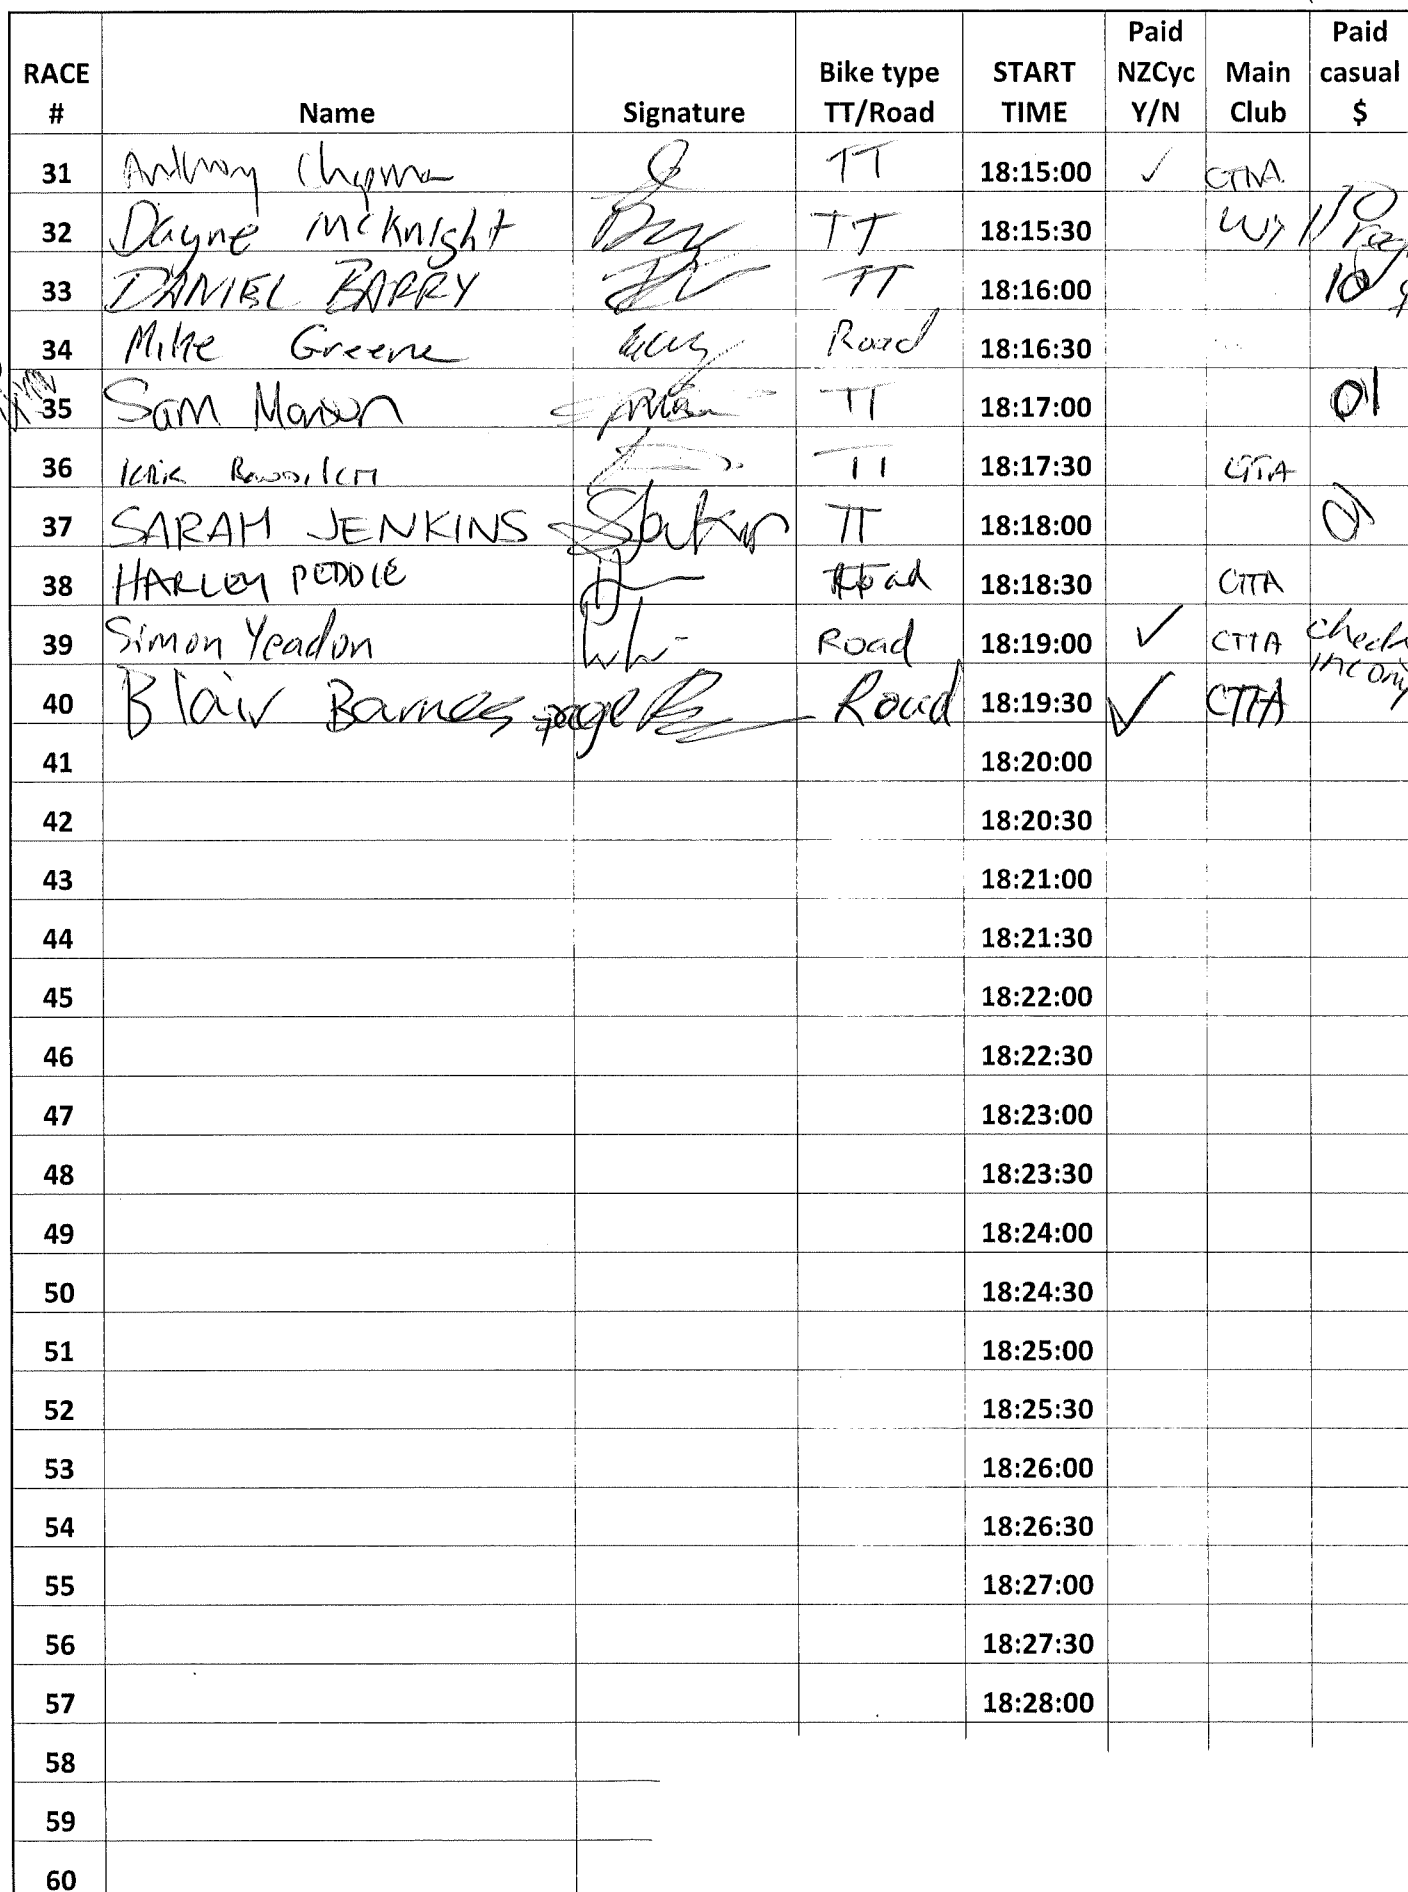 RACE # Name Signature Bike type TT/Road START TIME Paid NZCyc Y/N Main Club Paid casual $
31 Anthony TT 18:15:00 ✓ CTTA
32 Dayne McKnight TT 18:15:30 10
33 DANIEL BARRY TT 18:16:00 10
34 Mike Greene Road 18:16:30
35 Sam TT 18:17:00
36 TT 18:17:30 CTTA
37 SARAH JENKINS TT 18:18:00
38 HARLEY PEDDIE Road 18:18:30 CTTA
39 Simon Yeadon Road 18:19:00 ✓ CTTA check
40 Blair Barnes page Road 18:19:30 ✓ CTTA
41 18:20:00
42 18:20:30
43 18:21:00
44 18:21:30
45 18:22:00
46 18:22:30
47 18:23:00
48 18:23:30
49 18:24:00
50 18:24:30
51 18:25:00
52 18:25:30
53 18:26:00
54 18:26:30
55 18:27:00
56 18:27:30
57 18:28:00
58
59
60